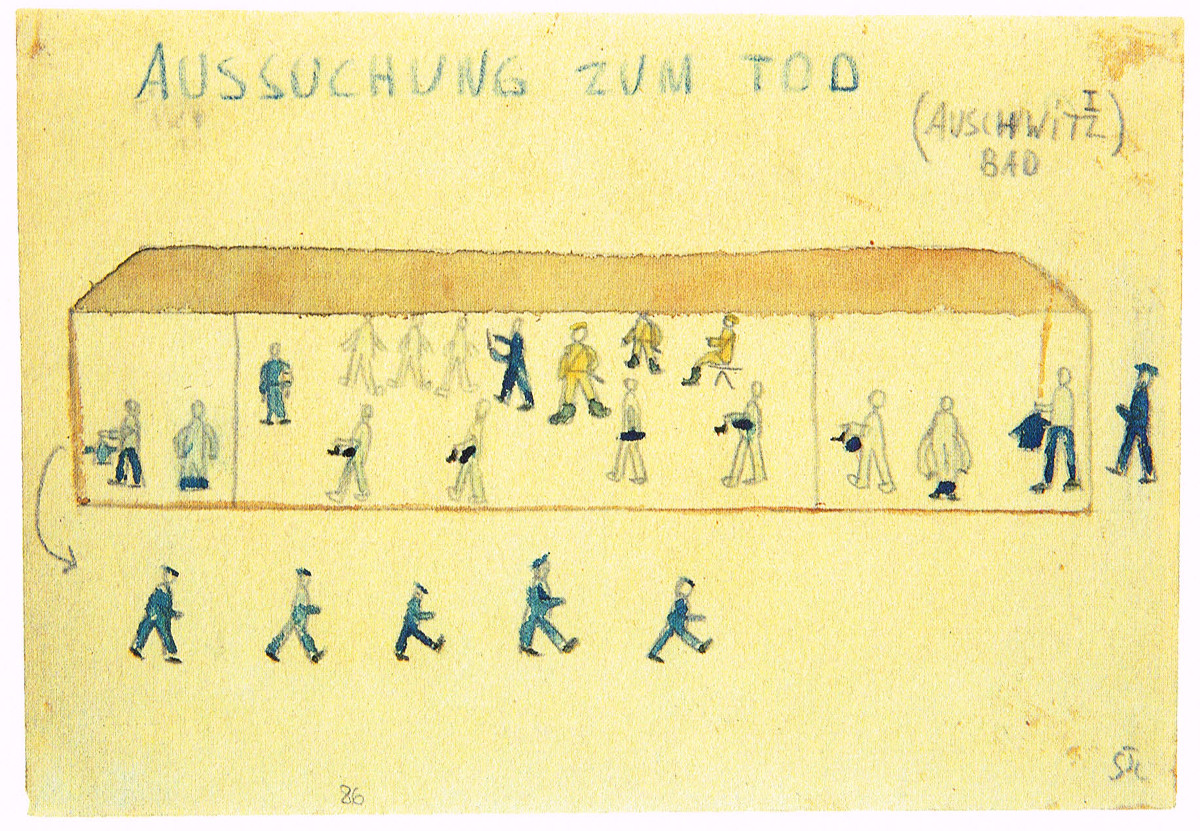 AUSSUCHUNG ZUM TOD
(AUSCHWITZ I)
BAD
86